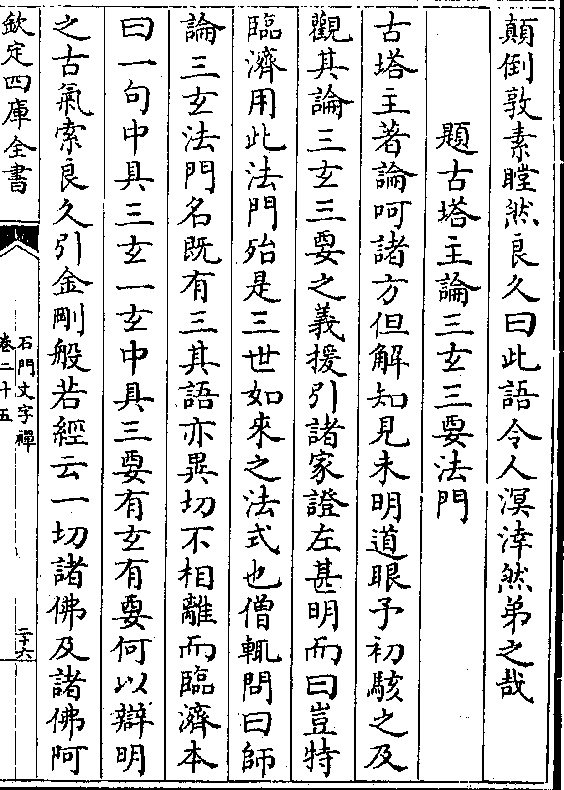 顛倒敦素瞠然良久曰此語令人溟涬然弟之哉
題古塔主論三玄三要法門
古塔主著論呵諸方但解知見未明道眼予初駭之及
觀其論三玄三要之義援引諸家證左甚明而曰豈特
臨濟用此法門殆是三世如來之法式也僧輒問曰師
論三玄法門名既有三其語亦異切不相離而臨濟本
曰一句中具三玄一玄中具三要有玄有要何以辯明
之古氣索良久引金剛般若經云一切諸佛及諸佛阿
欽定四庫全書
石門文字禪
卷二十五
二十六